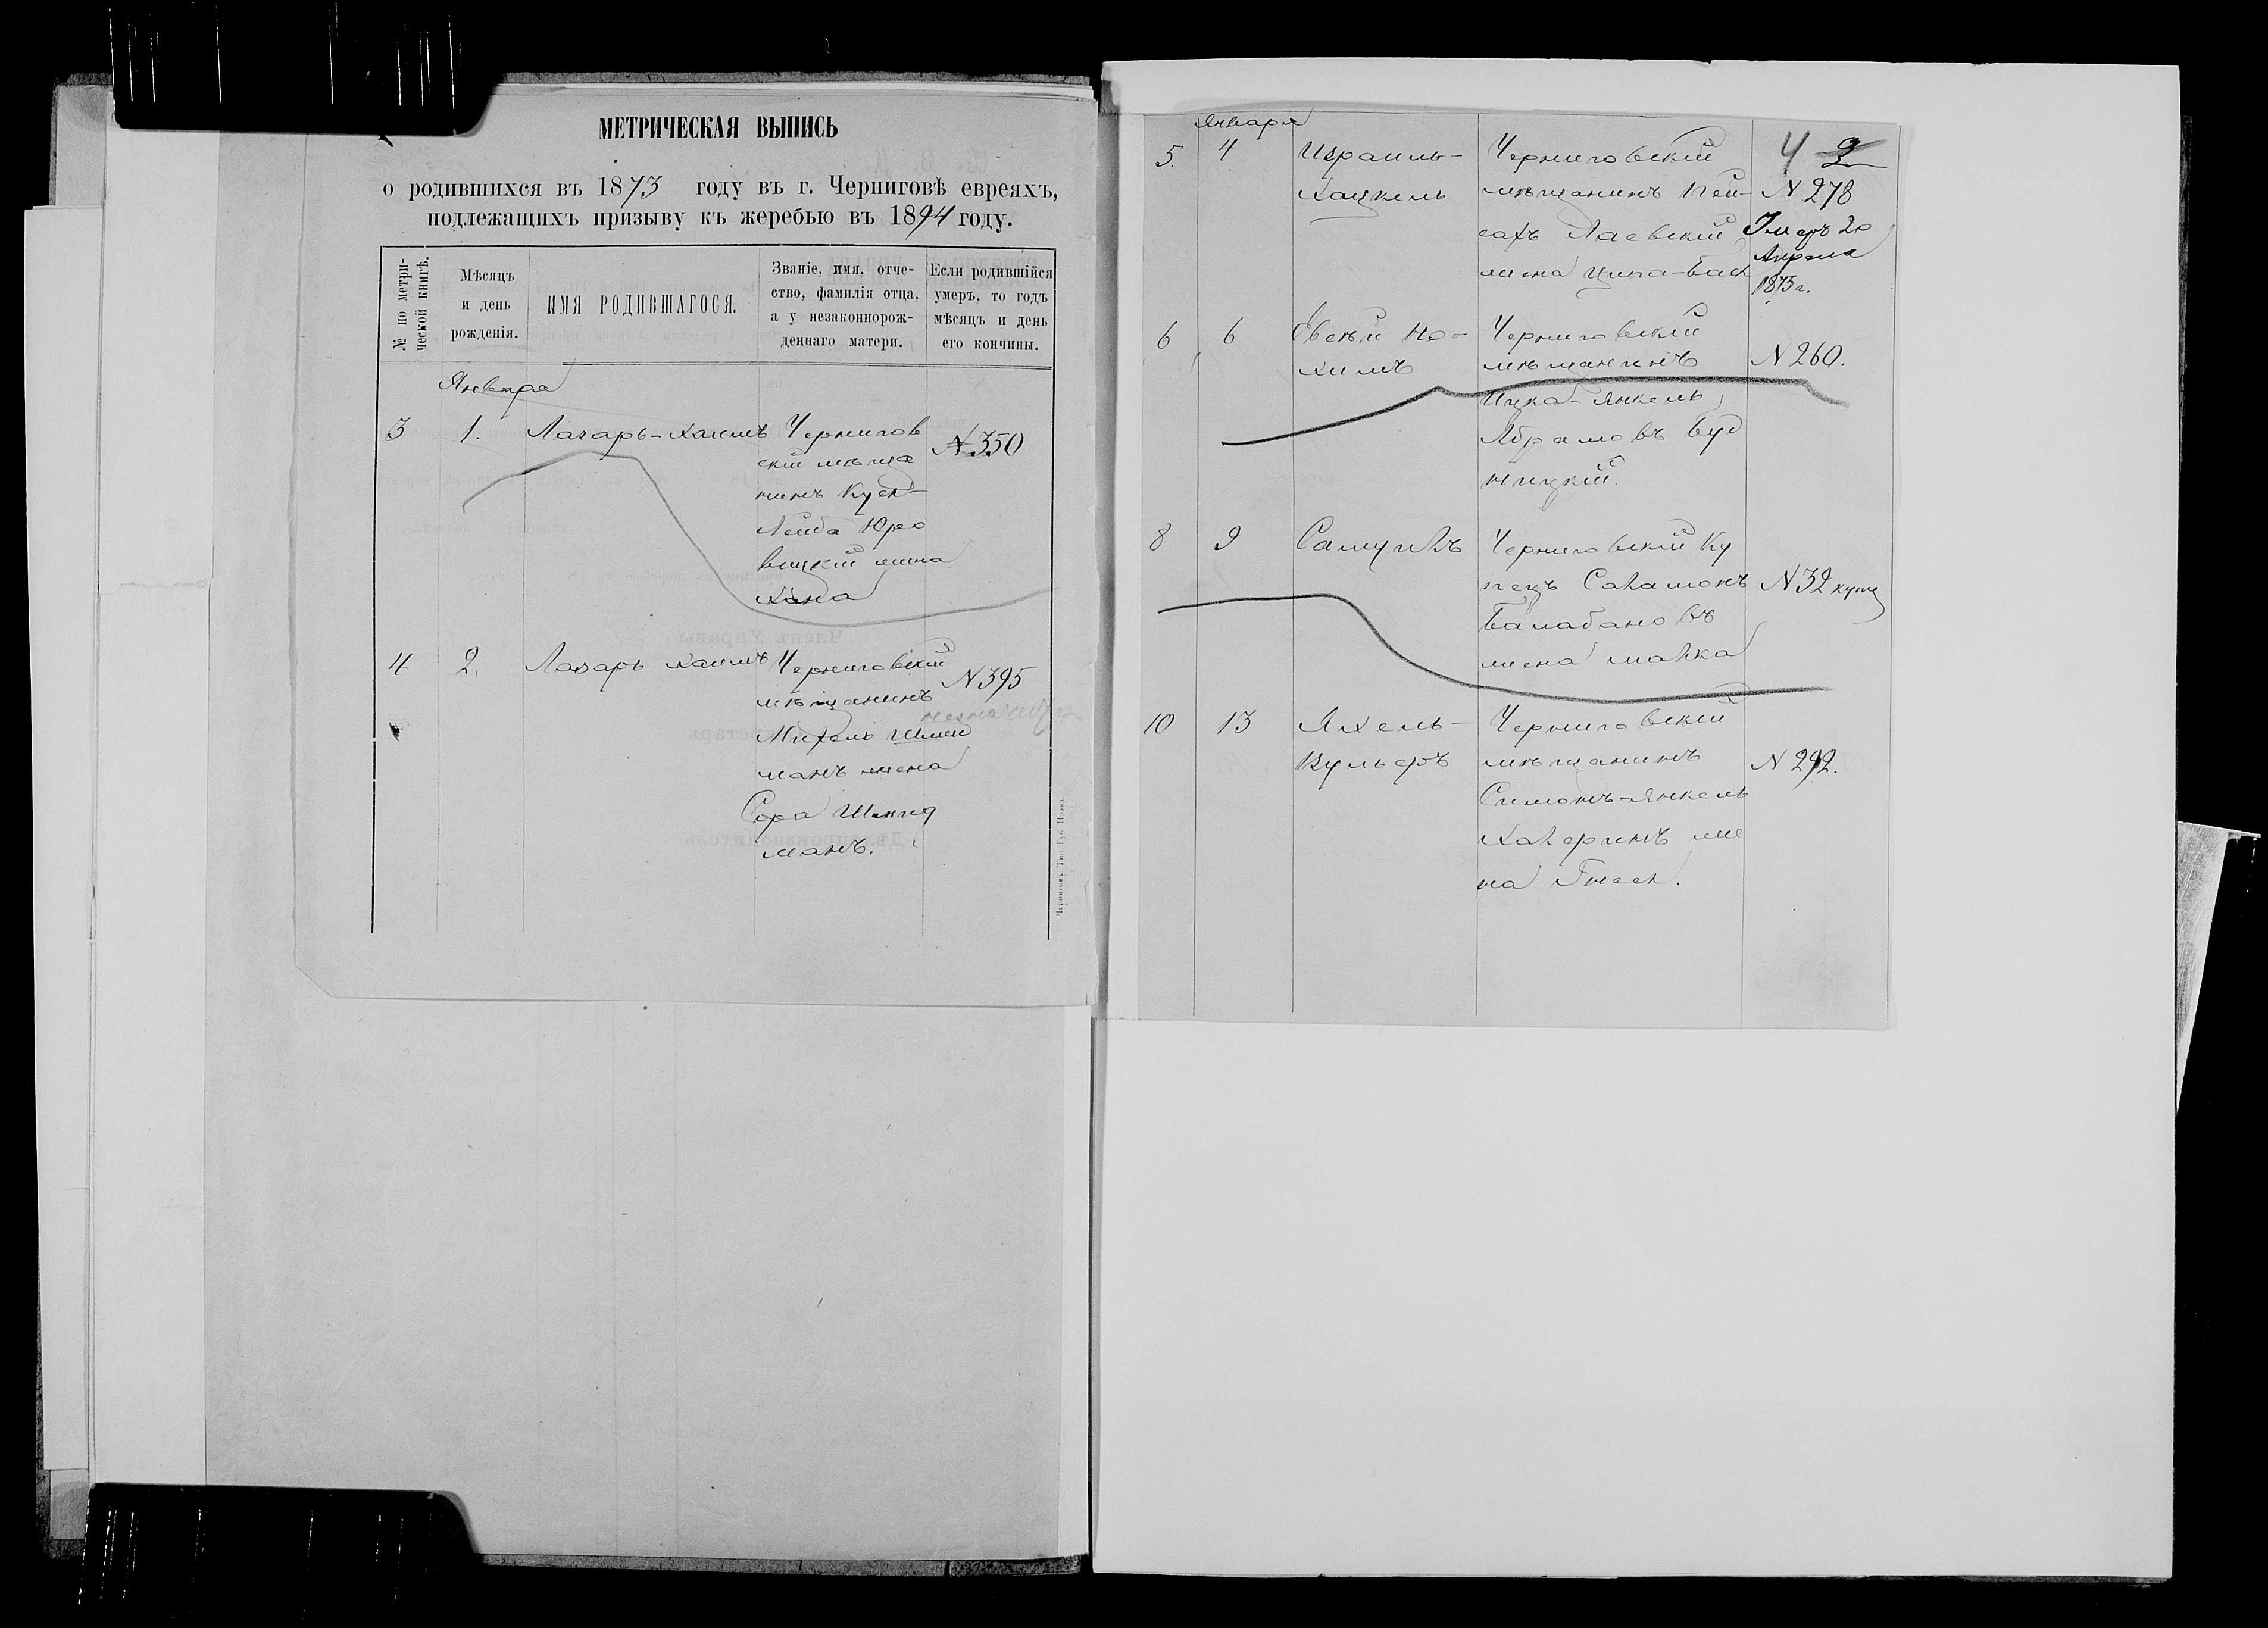 МЕТРИЧЕСКАЯ ВЫПИСЬ
о родившихся въ 1873 году въ г. Черниговѣ евреяхъ,
подлежащихъ призыву къ жеребью въ 1894 году.
№ по метри-
ческой книгѣ.
Мѣсяцъ
и день
рожденія.
ИМЯ РОДИВШАГОСЯ.
Званіе, имя, отче-
ство, фамилія отца,
а у незаконнорож-
деннаго матери.
Если родившійся
умеръ, то годъ
мѣсяцъ и день
его кончины.
Января
3 1. Лазарь-Хаимъ Чернигов
скій мѣща
нинъ
Лейба Юро
вицкій жена
Хана
N 350
4 2. Лазарь Хаимъ Черниговскій
мѣщанинъ
Михель
манъ жена
Сора
манъ.
N 395
Черниговъ. Тип. Губ. Правл.
Января
4 2
5. 4 Израиль-
Хацкель
Черниговскій
мѣщанинъ Пей-
сахъ Лаевскій
жена Ципа-Бася
N 278
Умеръ 20
Апреля
1875 г.
6 6 Евсѣй Но-
химъ
Черниговскій
мѣщанинъ
Ицка-Янкель
Абрамовъ Буд
ницкій.
N 260.
8 9 Самуилъ
Черниговскій Ку
пецъ Саламонъ
Балабановъ
жена Малка
N 32 купц
10 13 Яхель-
Вульфъ
Черниговскій
мѣщанинъ
Симонъ-Янкель
Хаверинъ же
на Гнеся.
N 292.